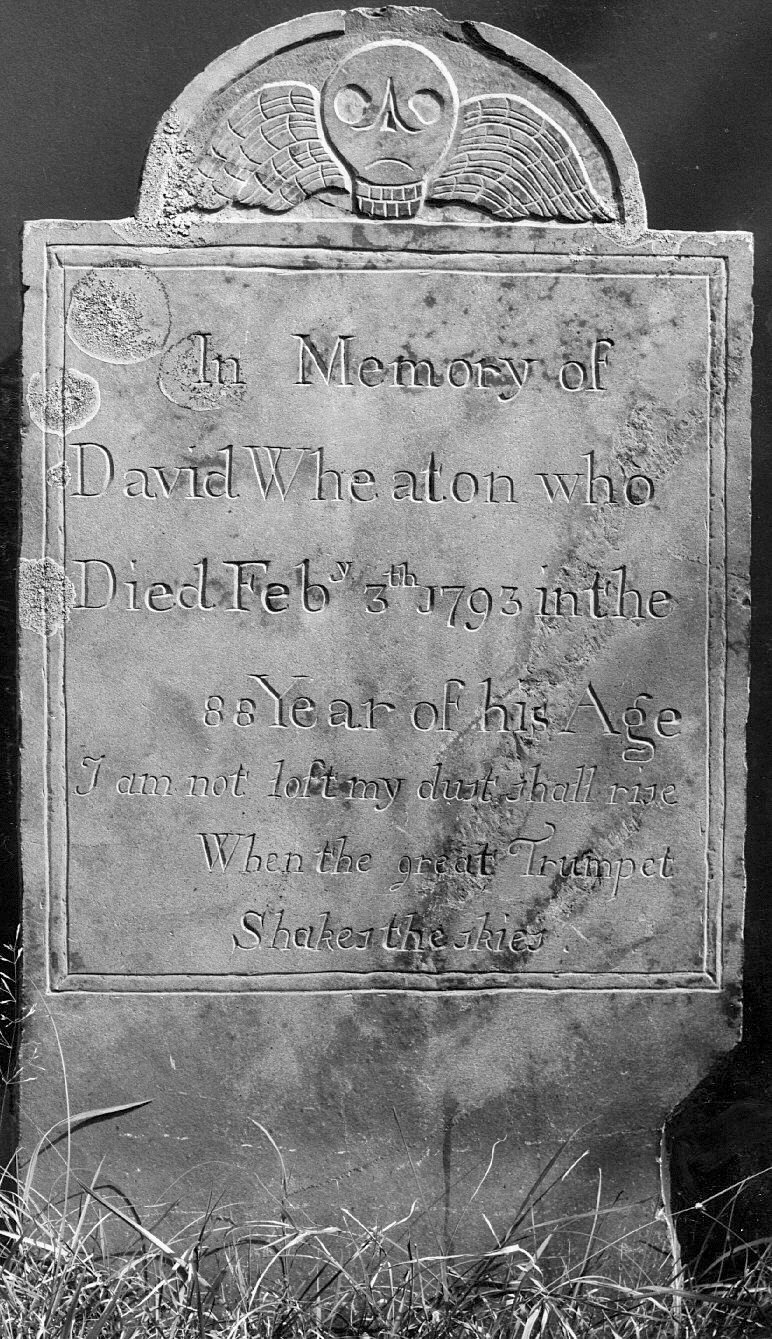 In Memory of
David Wheaton who
Died Feb^y 3^th 1793 in the
88 Year of his Age
I am not loſt my dust shall rise
When the great Trumpet
Shakes the skies